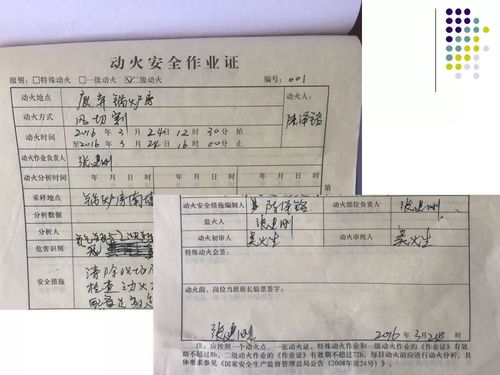 动火安全作业证
级别：□特殊动火 □一级动火 ☑二级动火 编号：001
动火地点 废弃锅炉房 动火人：
动火方式 风切割
动火时间 2016年3月24日12时30分始
至2016年3月24日16时00分止
动火作业负责人 张建刚
动火分析时间 年 月 日 时 年 月 日 时 年 月 日 时
采样地点 锅炉房南
分析数据
分析人
危害识别
安全措施 清除现场
检查动火
配备
动火安全措施编制人 动火部位负责人 张建刚
监火人 张建刚
动火初审人 吴火生 动火审批人 吴火生
特殊动火会签：
动火前，岗位当班班长验票签字：
张建刚 2016年3月24日 时
注：应按照一个动火点，一张动火证，特殊动火作业和一级动火作业的《作业证》有效
期不超过8h，二级动火作业的《作业证》有效期不超过72h，每日动火前应进行动火分析。具
体要求参见《国家安全生产监督管理总局公告（2008年第24号）》。